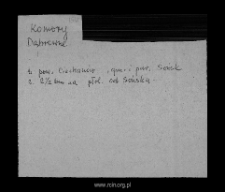 Komory
Dąbrowne
w pow. Ciechanów, gm. i par. Sońsk
2 ½ km na płd. od Sońska
www.rcin.org.pl